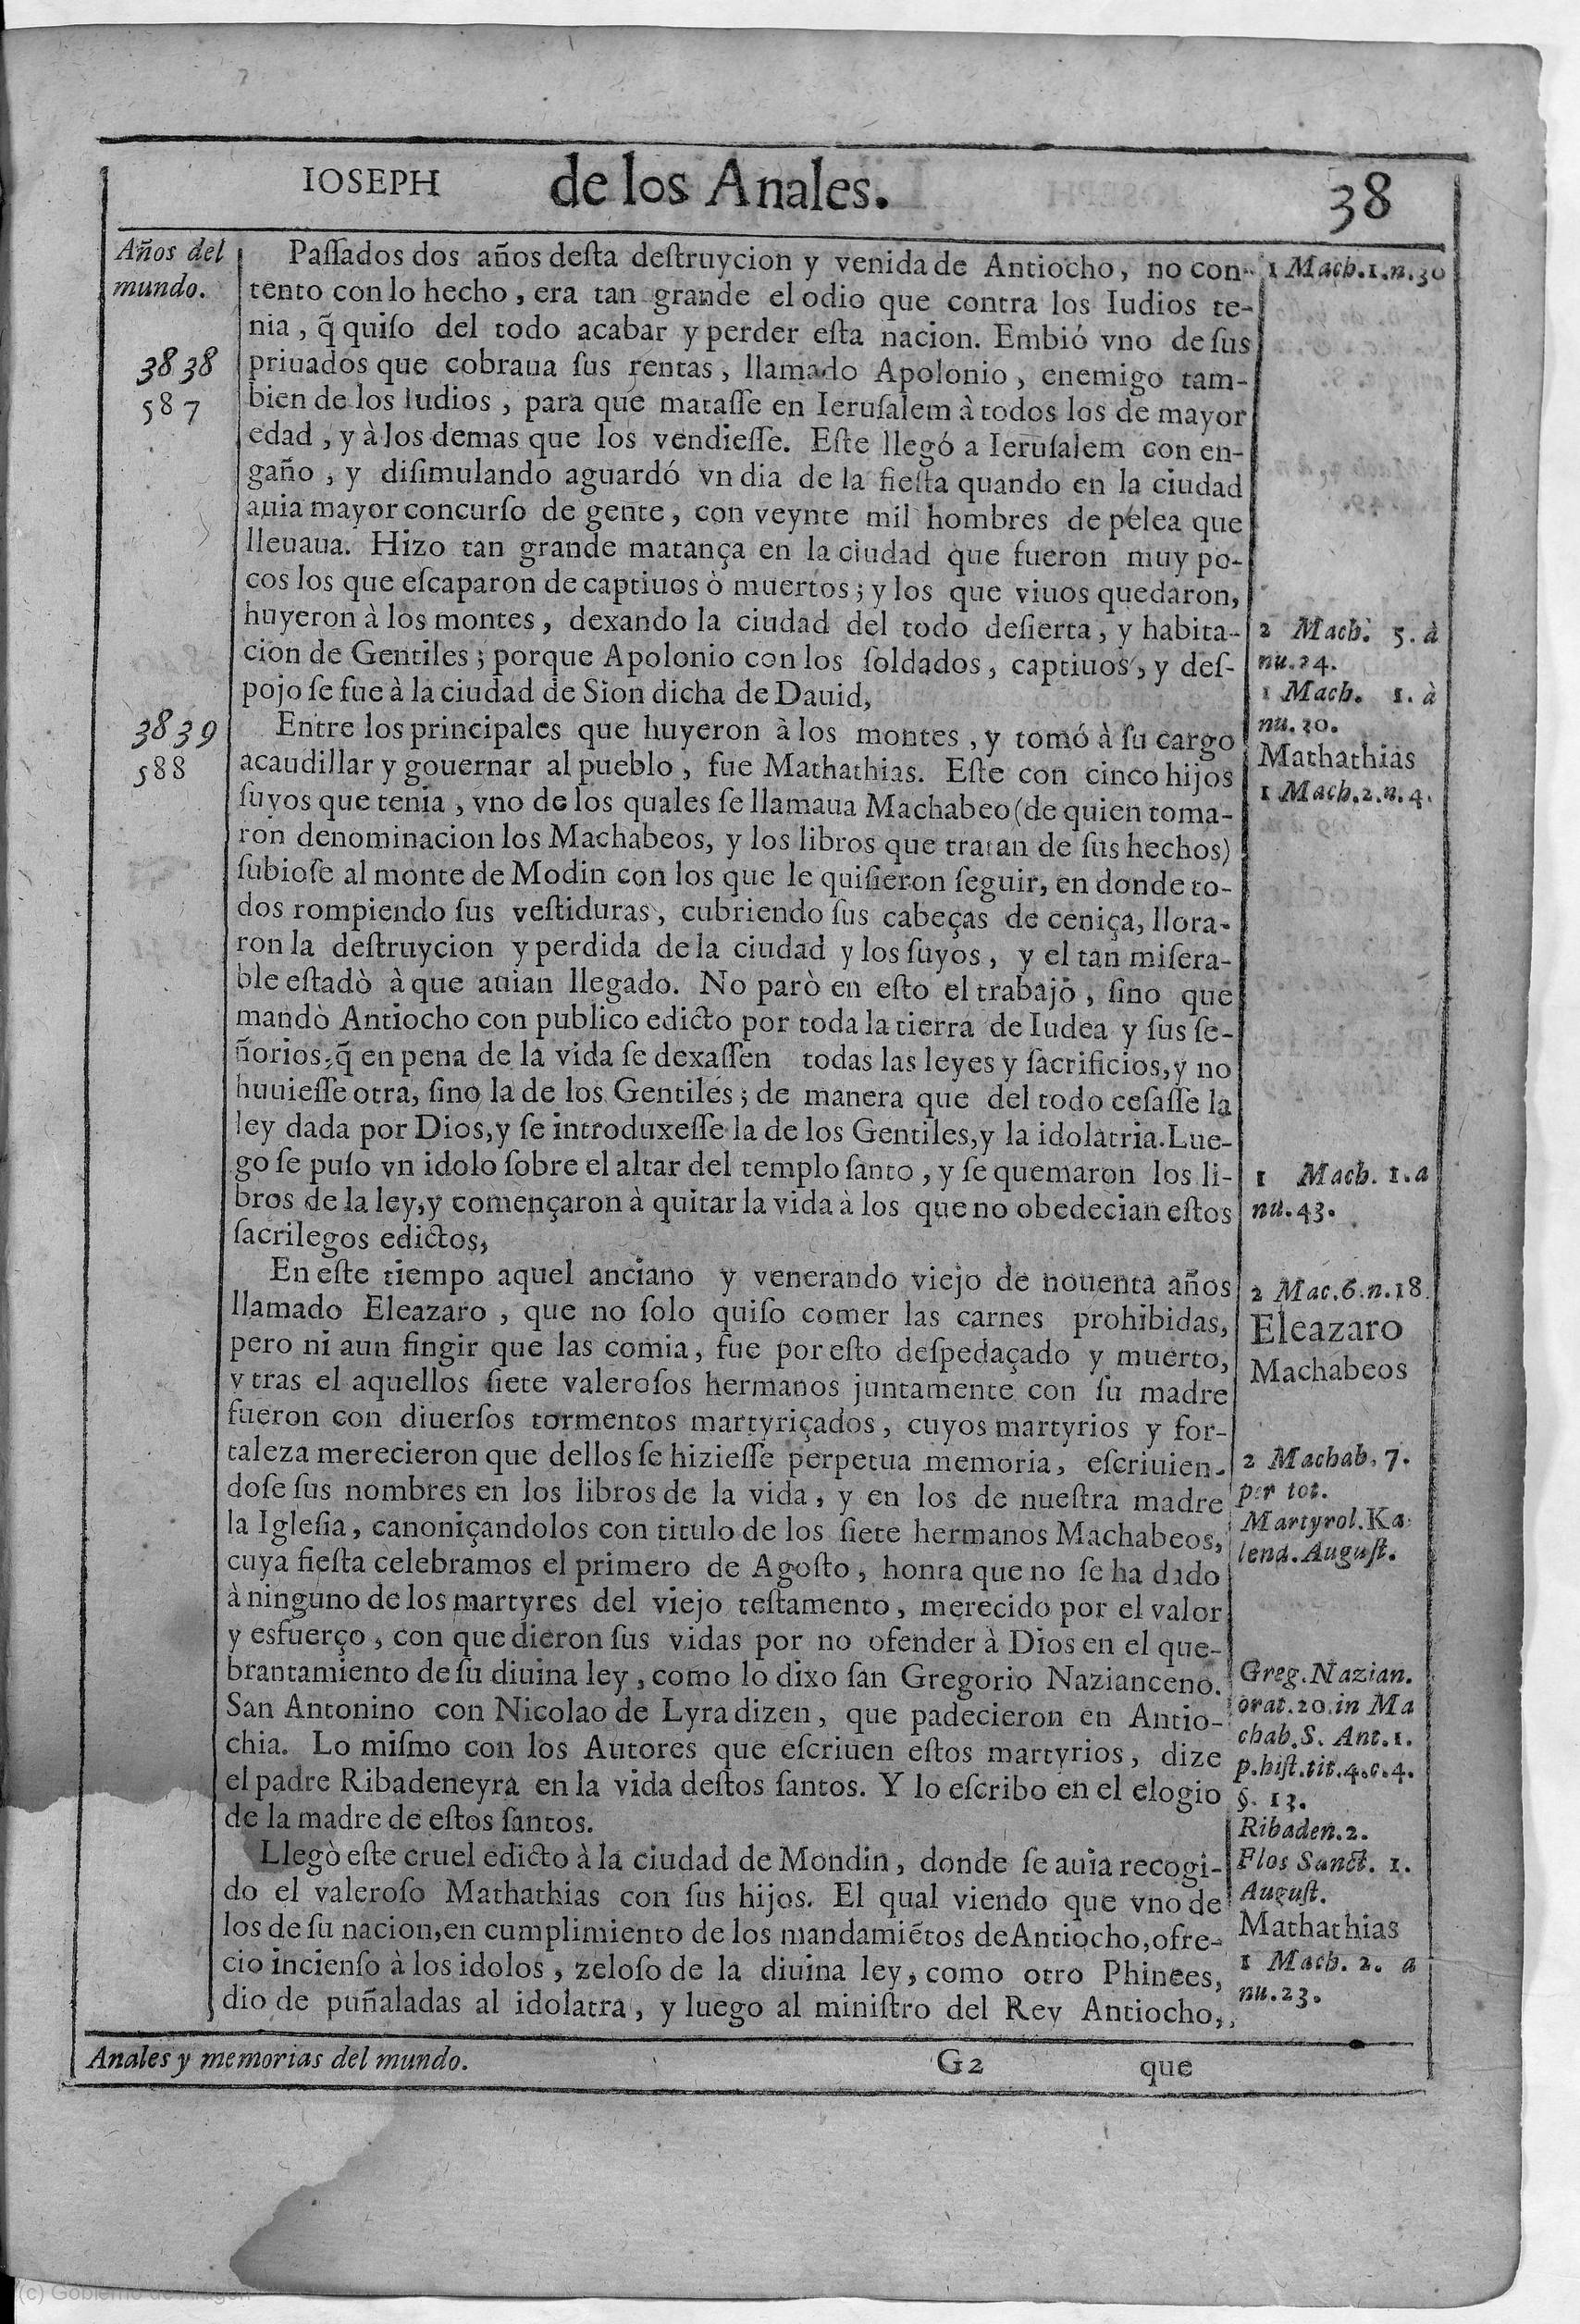 IOSEPH de los Anales. 38
Años del
mundo.
3838
587
3839
588
Paſſados dos años deſta deſtruycion y venida de Antiocho, no con-
tento con lo hecho, era tan grande el odio que contra los Iudios te-
nia, q̃ quiſo del todo acabar y perder eſta nacion. Embió vno de ſus
priuados que cobraua ſus rentas, llamado Apolonio, enemigo tam-
bien de los Iudios, para que mataſſe en Ieruſalem à todos los de mayor
edad, y à los demas que los vendieſſe. Eſte llegó a Ieruſalem con en-
gaño, y diſimulando aguardó vn dia de la fieſta quando en la ciudad
auia mayor concurſo de gente, con veynte mil hombres de pelea que
lleuaua. Hizo tan grande matança en la ciudad que fueron muy po-
cos los que eſcaparon de captiuos ò muertos; y los que viuos quedaron,
huyeron à los montes, dexando la ciudad del todo deſierta, y habita-
cion de Gentiles; porque Apolonio con los ſoldados, captiuos, y deſ-
pojo ſe fue à la ciudad de Sion dicha de Dauid,
Entre los principales que huyeron à los montes, y tomó à ſu cargo
acaudillar y gouernar al pueblo, fue Mathathias. Eſte con cinco hijos
ſuyos que tenia, vno de los quales ſe llamaua Machabeo (de quien toma-
ron denominacion los Machabeos, y los libros que tratan de ſus hechos)
ſubioſe al monte de Modin con los que le quiſieron ſeguir, en donde to-
dos rompiendo ſus veſtiduras, cubriendo ſus cabeças de ceniça, llora-
ron la deſtruycion y perdida de la ciudad y los ſuyos, y el tan miſera-
ble eſtadò à que auian llegado. No parò en eſto el trabajo, ſino que
mandò Antiocho con publico edicto por toda la tierra de Iudea y ſus ſe-
ñorios, q̃ en pena de la vida ſe dexaſſen todas las leyes y ſacrificios, y no
huuieſſe otra, ſino la de los Gentiles; de manera que del todo ceſaſſe la
ley dada por Dios, y ſe introduxeſſe la de los Gentiles, y la idolatria. Lue-
go ſe puſo vn idolo ſobre el altar del templo ſanto, y ſe quemaron los li-
bros de la ley, y començaron à quitar la vida à los que no obedecian eſtos
ſacrilegos edictos,
En eſte tiempo aquel anciano y venerando viejo de nouenta años
llamado Eleazaro, que no ſolo quiſo comer las carnes prohibidas,
pero ni aun fingir que las comia, fue por eſto deſpedaçado y muerto,
y tras el aquellos ſiete valeroſos hermanos juntamente con ſu madre
fueron con diuerſos tormentos martyriçados, cuyos martyrios y for-
taleza merecieron que dellos ſe hizieſſe perpetua memoria, eſcriuien-
doſe ſus nombres en los libros de la vida, y en los de nueſtra madre
la Igleſia, canoniçandolos con titulo de los ſiete hermanos Machabeos,
cuya fieſta celebramos el primero de Agoſto, honra que no ſe ha dado
à ninguno de los martyres del viejo teſtamento, merecido por el valor
y esfuerço, con que dieron ſus vidas por no ofender à Dios en el que-
brantamiento de ſu diuina ley, como lo dixo ſan Gregorio Nazianceno.
San Antonino con Nicolao de Lyra dizen, que padecieron en Antio-
chia. Lo miſmo con los Autores que eſcriuen eſtos martyrios, dize
el padre Ribadeneyra en la vida deſtos ſantos. Y lo eſcribo en el elogio
de la madre de eſtos ſantos.
Llegò eſte cruel edicto à la ciudad de Mondin, donde ſe auia recogi-
do el valeroſo Mathathias con ſus hijos. El qual viendo que vno de
los de ſu nacion, en cumplimiento de los mandamiẽtos de Antiocho, ofre-
cio incienſo à los idolos, zeloſo de la diuina ley, como otro Phinees,
dio de puñaladas al idolatra, y luego al miniſtro del Rey Antiocho,
1 Mach. 1. n. 30
2 Mach. 5. à
nu. 24.
1 Mach. 1. à
nu. 30.
Mathathias
1 Mach. 2. n. 4.
1 Mach. 1. a
nu. 43.
2 Mac. 6. n. 18.
Eleazaro
Machabeos
2 Machab. 7.
per tot.
Martyrol. Ka
lend. Auguſt.
Greg. Nazian.
orat. 20. in Ma
chab. S. Ant. 1.
p. hiſt. tit. 4. c. 4.
§. 13.
Ribaden. 2.
Flos Sanct. 1.
Auguſt.
Mathathias
1 Mach. 2. a
nu. 23.
Anales y memorias del mundo. G2 que
(c) Gobierno de Aragón